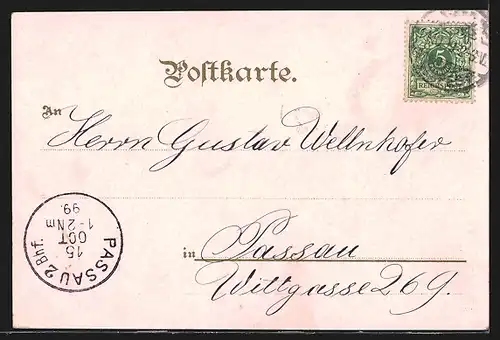 Postkarte.
5
An
Herrn Gustav Wellnhofer
in Passau
Wittgasse 269.
PASSAU 2 Bhf.
15
OCT
1-2Nm
99.